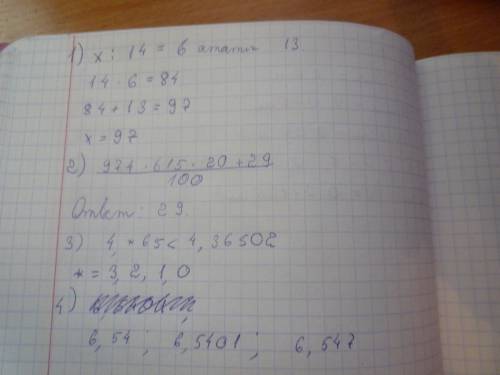 1) x : 14 = 6 остаток 13
14 · 6 = 84
84 + 13 = 97
x = 97
2) 974 · 615 · 20 + 29
100
Ответ: 29.
3) 4, * 65 < 4, 36502
* = 3, 2, 1, 0
4)
6, 54 ; 6, 5401 ; 6, 547